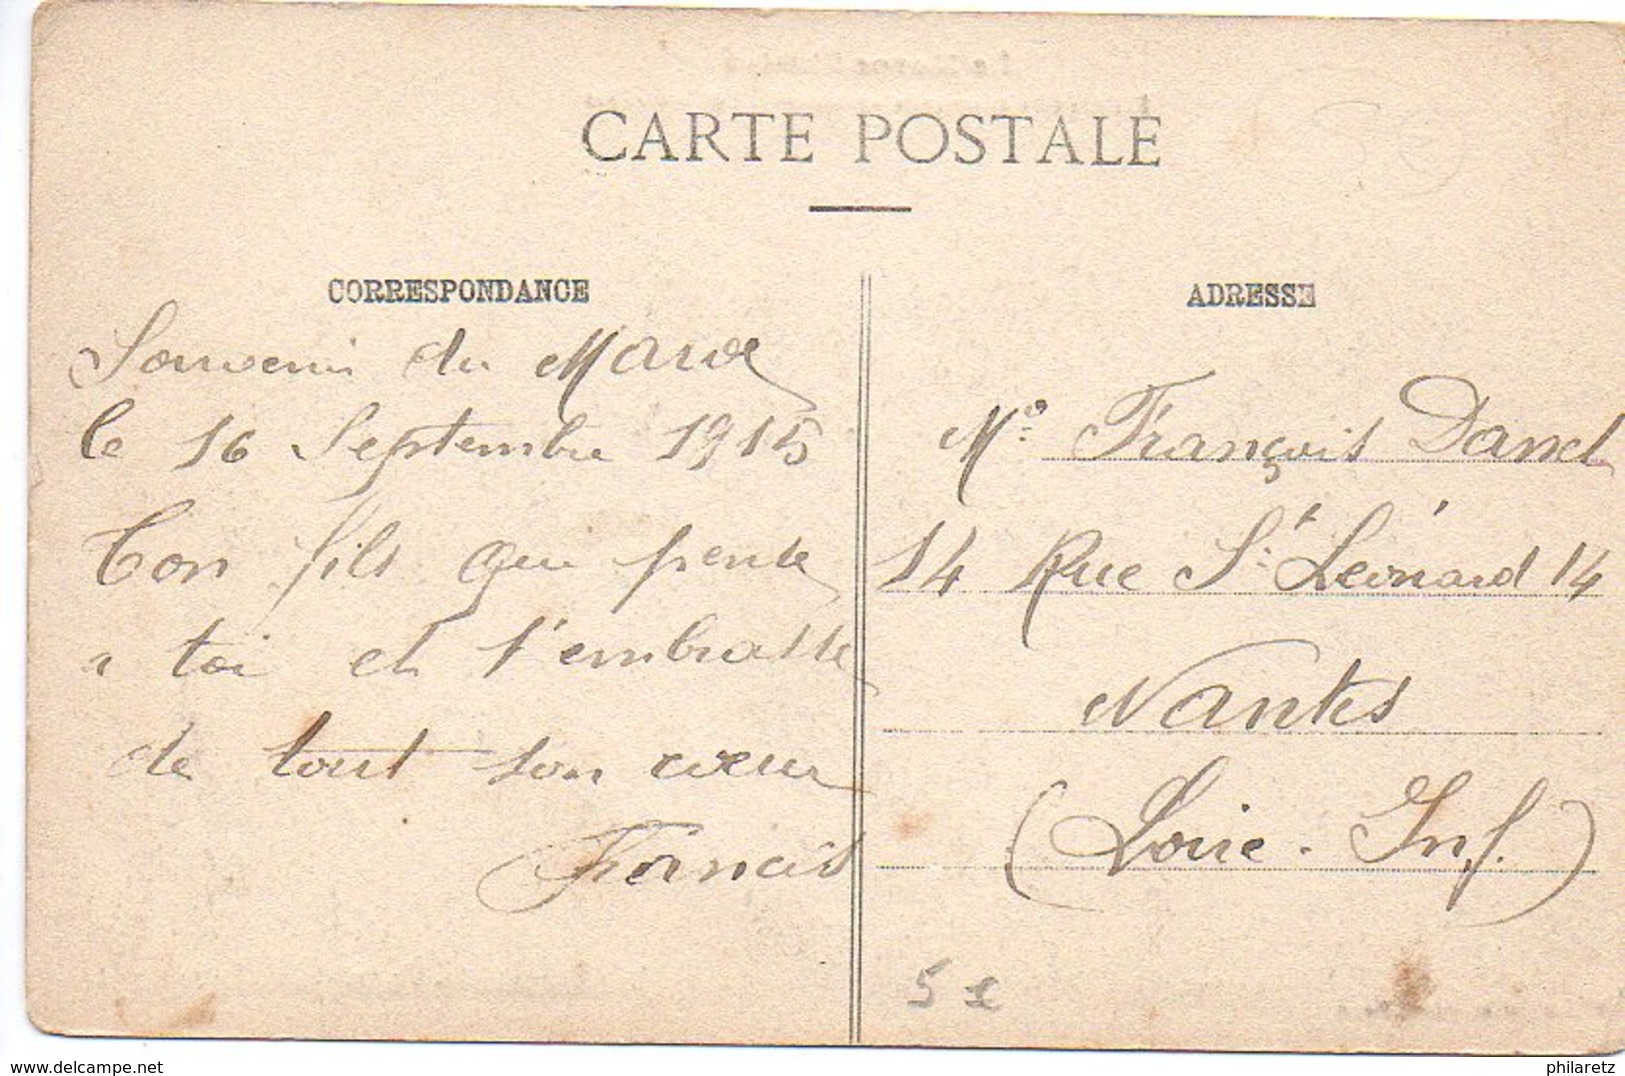 CARTE POSTALE
CORRESPONDANCE
Souvenir du Maroc
le 16 Septembre 1915
Ton fils qui pense
à toi et t'embrasse
de tout son cœur
Francis
ADRESSE
Mr François Danel
14 Rue St Léonard 14
Nantes
(Loire-Inf.)
5
delcampe.net
philaretz